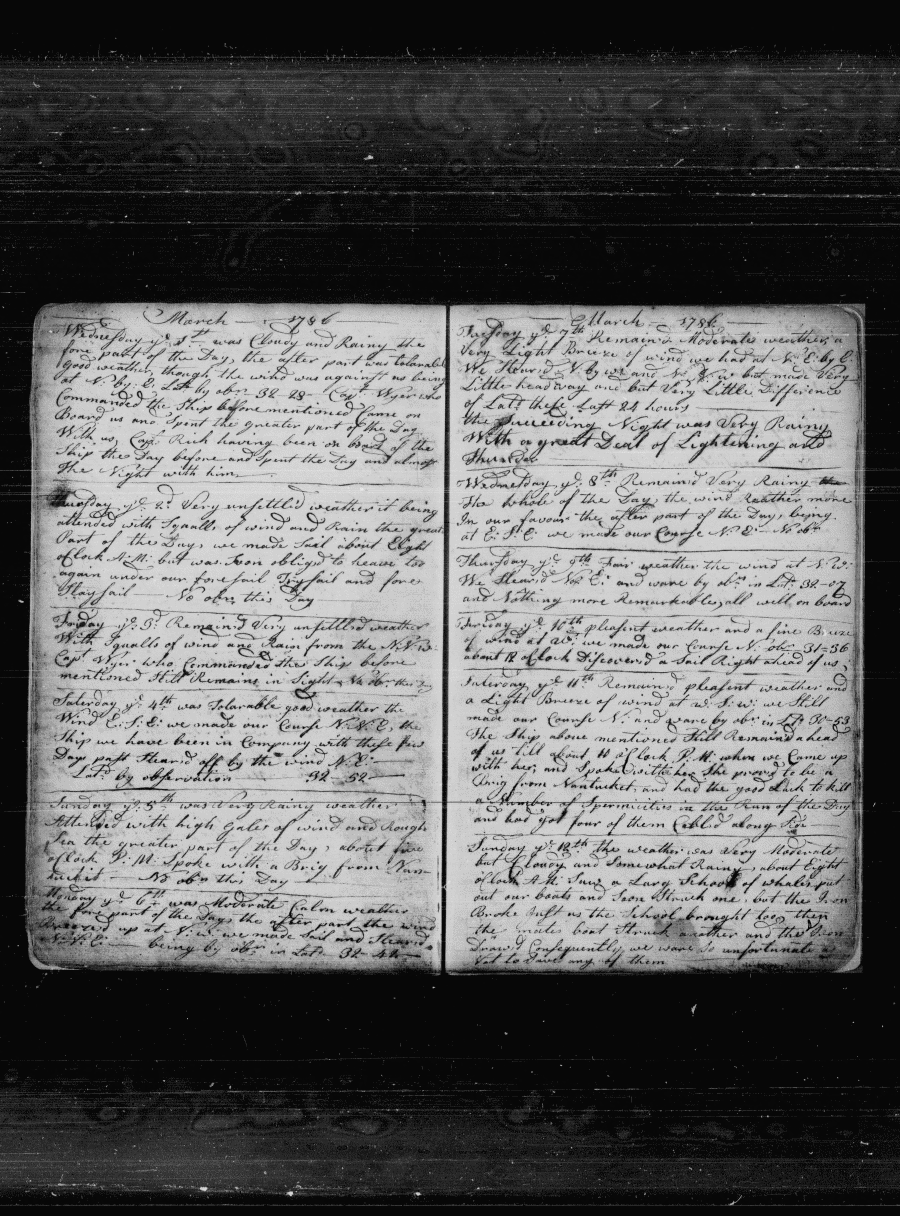 March — 1786
Wednesday ye. 1st was Cloudy and Rainy the
fore part of the Day, the after part was tolarable
good weather, though the wind was against us being
at N. by E. Latt by obn. 32-28 — Capt. Wyer who
Commanded the Ship before mentioned Came on
Board us and Spent the greater part of the Day
With us, Capt. Rich having been on board of the
Ship the Day before and Spent the Day and almost
The Night with him
Thursday ye. 2d. Very unsettled weather it being
attended with Squalls of wind and Rain the great
Part of the Day, we made Sail about Eight
oClock A:M: but was Soon obliged to heave too
again under our fore sail Trysail and fore
Stay sail — No obn. this Day
Friday ye. 3d. Remained Very unsettled weather
With Squalls of wind and Rain from the N:N:W:
Capt. Wyer who Commanded the Ship before
mentioned Still Remains in Sight, No obn. this Day
Saturday ye. 4th was Tolarable good weather the
Wind E:S:E: we made our Course N:N:E, the
Ship we have been in Company with these few
Days past Steard off by the wind N.E:
Latt. by observation 32-52
Sunday ye. 5th was Very Rainy weather
Attended with high Gales of wind and Rough
Sea the greater part of the Day, about five
oClock P:M. Spoke with a Brig from Nan-
tucket — No obn. this Day
Monday ye 6th was Moderate Calm weather
the fore part of the Day, the after part the wind
Breez'd up at S:W: we made Sail and Steard
being by obn. in Latt. 32-44
March — 1786
Tuesday ye. 7th Remain'd Moderate weather, a
Very Light Breeze of wind we had at N. E. by E.
We Steard N. by W: and N: N: W: but made Very
Little headway and but Very Little Difference
of Latt these Last 24 hours
the Succeeding Night was Very Rainy
With a great Deal of Lightening and
Thunder
Wednesday ye. 8th Remain'd Very Rainy the
The whole of the Day, the wind Reather more
In our favour the after part of the Day, being
at E:S:E: we made our Course N.E — No obn.
Thursday ye. 9th Fair weather the wind at N.W:
We Steard N: E: and ware by obn. in Latt. 32-07
and Nothing more Remarkable, all well on board
Friday ye 10th pleasent weather and a fine Breeze
of wind at W: we made our Course N. obn. 31=36
about 12 oClock Discovered a Sail Right ahead of us,
Saturday ye 11th Remain'd pleasent weather and
a Light Breeze of wind at W: S: W: we Still
made our Course N: and ware by obn. in Latt. 30-53
The Ship above mentioned Still Remain'd ahead
of us till about 10 oClock P.M. when we Came up
with her, and Spoke with her She prov'd to be a
Brig from Nantucket, and had the good Luck to kill
a Number of Spermicities in the Run of the Day
and had got four of them Cabl'd along Side
Sunday ye 12th the weather was Very Moderate
but Cloudy and Somewhat Rainy, about Eight
oClock A:M: Saw a Larg School of whales put
out our boats and Soon Struck one, but the Iron
Broke Just as the School brought too, then
the mates boat Struck another and the Iron
Draw'd Consequently, we ware So unfortunate as
Not to Save any of them